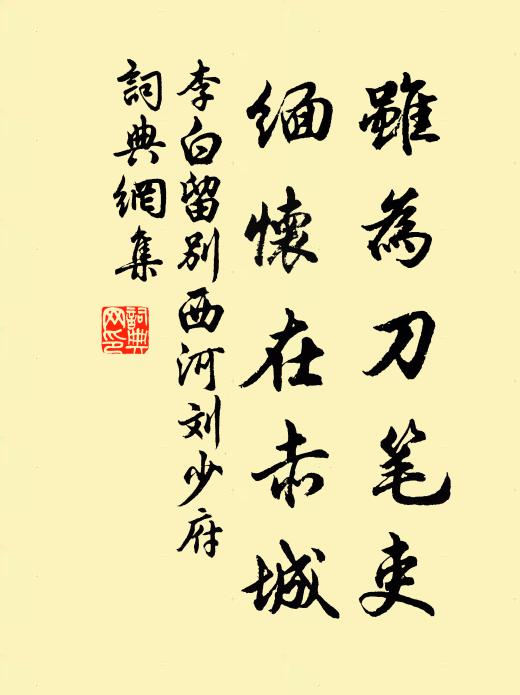 雖為刀笔吏
缅懷在赤城
李白留别西河刘少府
詞典網集
詞典
网印